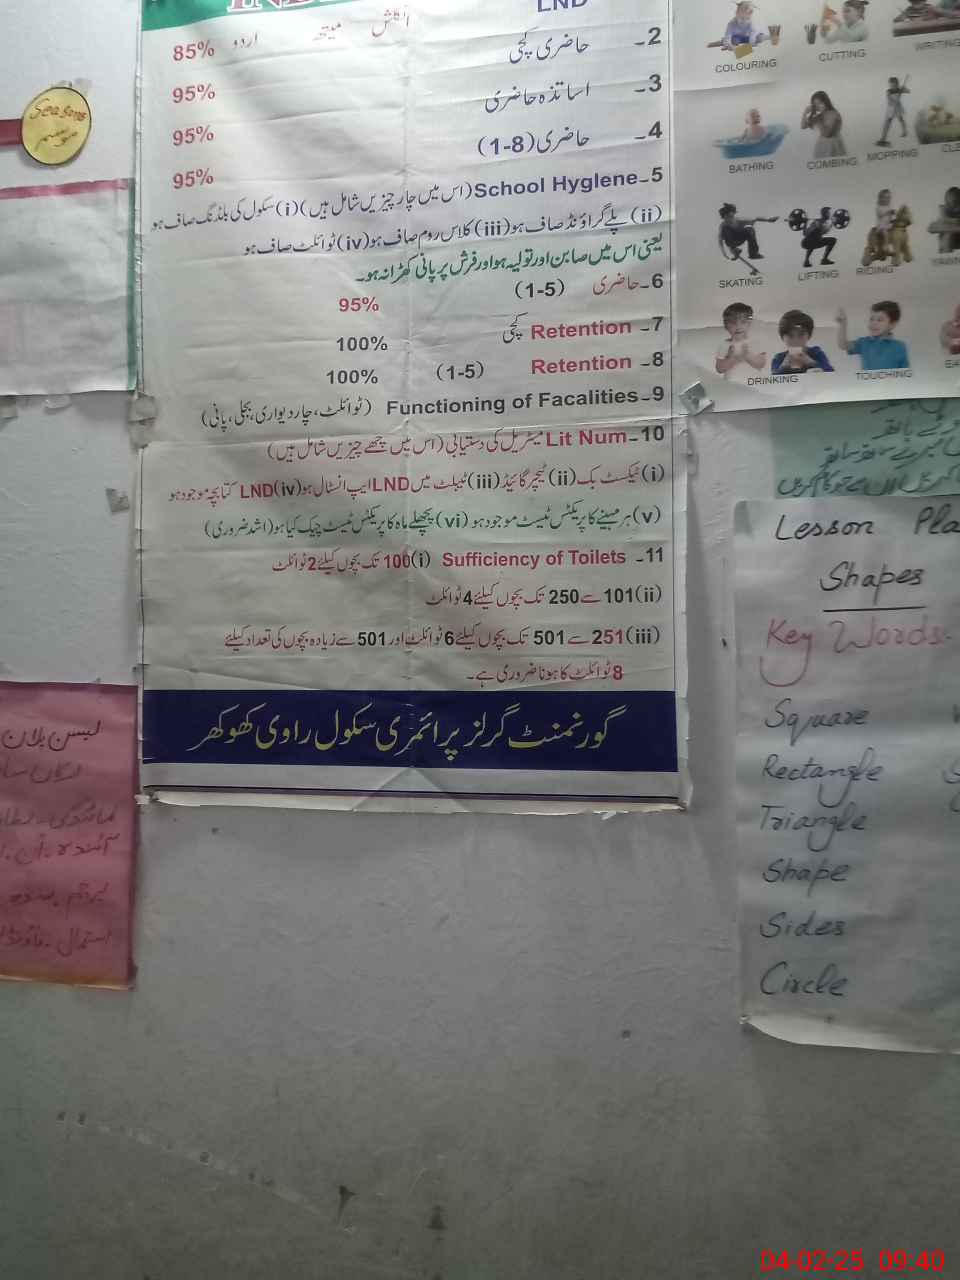 LND
انگلش میتھ اردو 85%
2- حاضری کچی 95%
3- اساتذہ حاضری 95%
4- حاضری (1-8) 95%
5- School Hyglene (اس میں چار چیزیں شامل ہیں) (i) سکول کی بلڈنگ صاف ہو
(ii) پلے گراؤنڈ صاف ہو (iii) کلاس روم صاف ہو (iv) ٹوائلٹ صاف ہو
یعنی اس میں صابن اور تولیہ ہو اور فرش پر پانی کھڑا نہ ہو۔
6- حاضری (1-5) 95%
7- Retention کچی 100%
8- Retention (1-5) 100%
9- Functioning of Facalities (ٹوائلٹ، چار دیواری، بجلی، پانی)
10- Lit Num میٹریل کی دستیابی (اس میں چھے چیزیں شامل ہیں)
(i) ٹیکسٹ بک (ii) ٹیچر گائیڈ (iii) ٹیبلٹ میں LND ایپ انسٹال ہو (iv) LND کتابچہ موجود ہو
(v) ہر مہینے کا پریکٹس ٹیسٹ موجود ہو (vi) پچھلے ماہ کا پریکٹس ٹیسٹ چیک کیا ہو (اشد ضروری)
11- Sufficiency of Toilets (i) 100 تک بچوں کیلئے 2 ٹوائلٹ
(ii) 101 سے 250 تک بچوں کیلئے 4 ٹوائلٹ
(iii) 251 سے 501 تک بچوں کیلئے 6 ٹوائلٹ اور 501 سے زیادہ بچوں کی تعداد کیلئے
8 ٹوائلٹ کا ہونا ضروری ہے۔
گورنمنٹ گرلز پرائمری سکول راوی کھوکھر
Seasons
موسم
COLOURING CUTTING WRITING
BATHING COMBING MOPPING
SKATING LIFTING RIDING
DRINKING TOUCHING
Lesson
Shapes
Key Words:
Square
Rectangle
Triangle
Shape
Sides
Circle
لیسن پلان
04-02-25 09:40